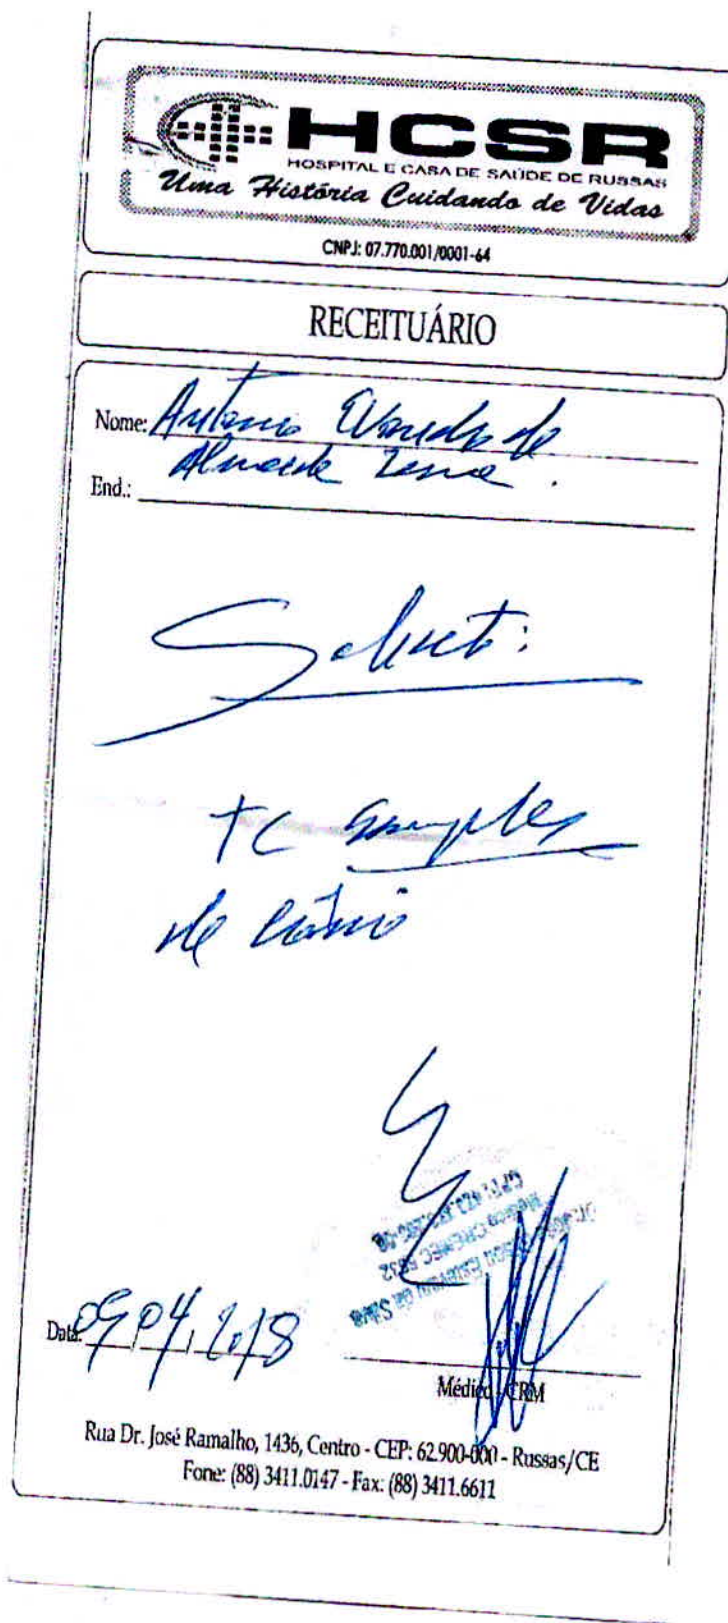 HCSR
HOSPITAL E CASA DE SAÚDE DE RUSSAS
Uma História Cuidando de Vidas
CNPJ: 07.770.001/0001-64
RECEITUÁRIO
Nome: Antonio de
Almeida
End.:
Solicito:
TC Simples
de Crânio
Data: 09,04,2018
Médico - CRM
Rua Dr. José Ramalho, 1436, Centro - CEP: 62.900-000 - Russas/CE
Fone: (88) 3411.0147 - Fax: (88) 3411.6611